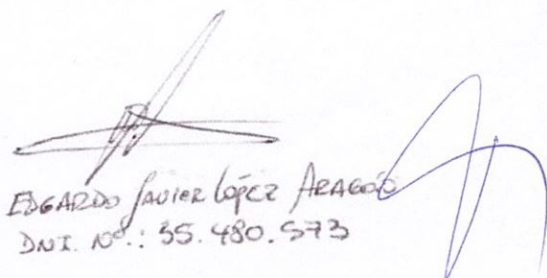 EDGARDO JAVIER LÓPEZ ARAGÓN
DNI. Nº.: 35.480.573